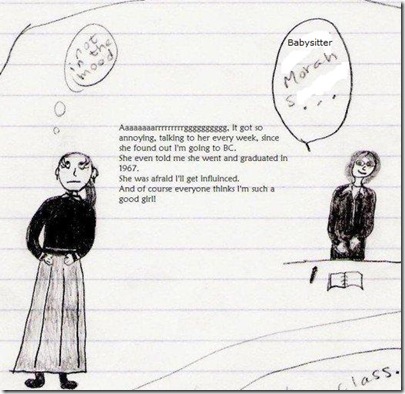 not
in the
mood
Babysitter
Morah
S...
Aaaaaaaarrrrrrrrrggggggggg, It got so
annoying, talking to her every week, since
she found out I'm going to BC.
She even told me she went and graduated in
1967.
She was afraid I'll get influinced.
And of course everyone thinks I'm such a
good girl!
class.